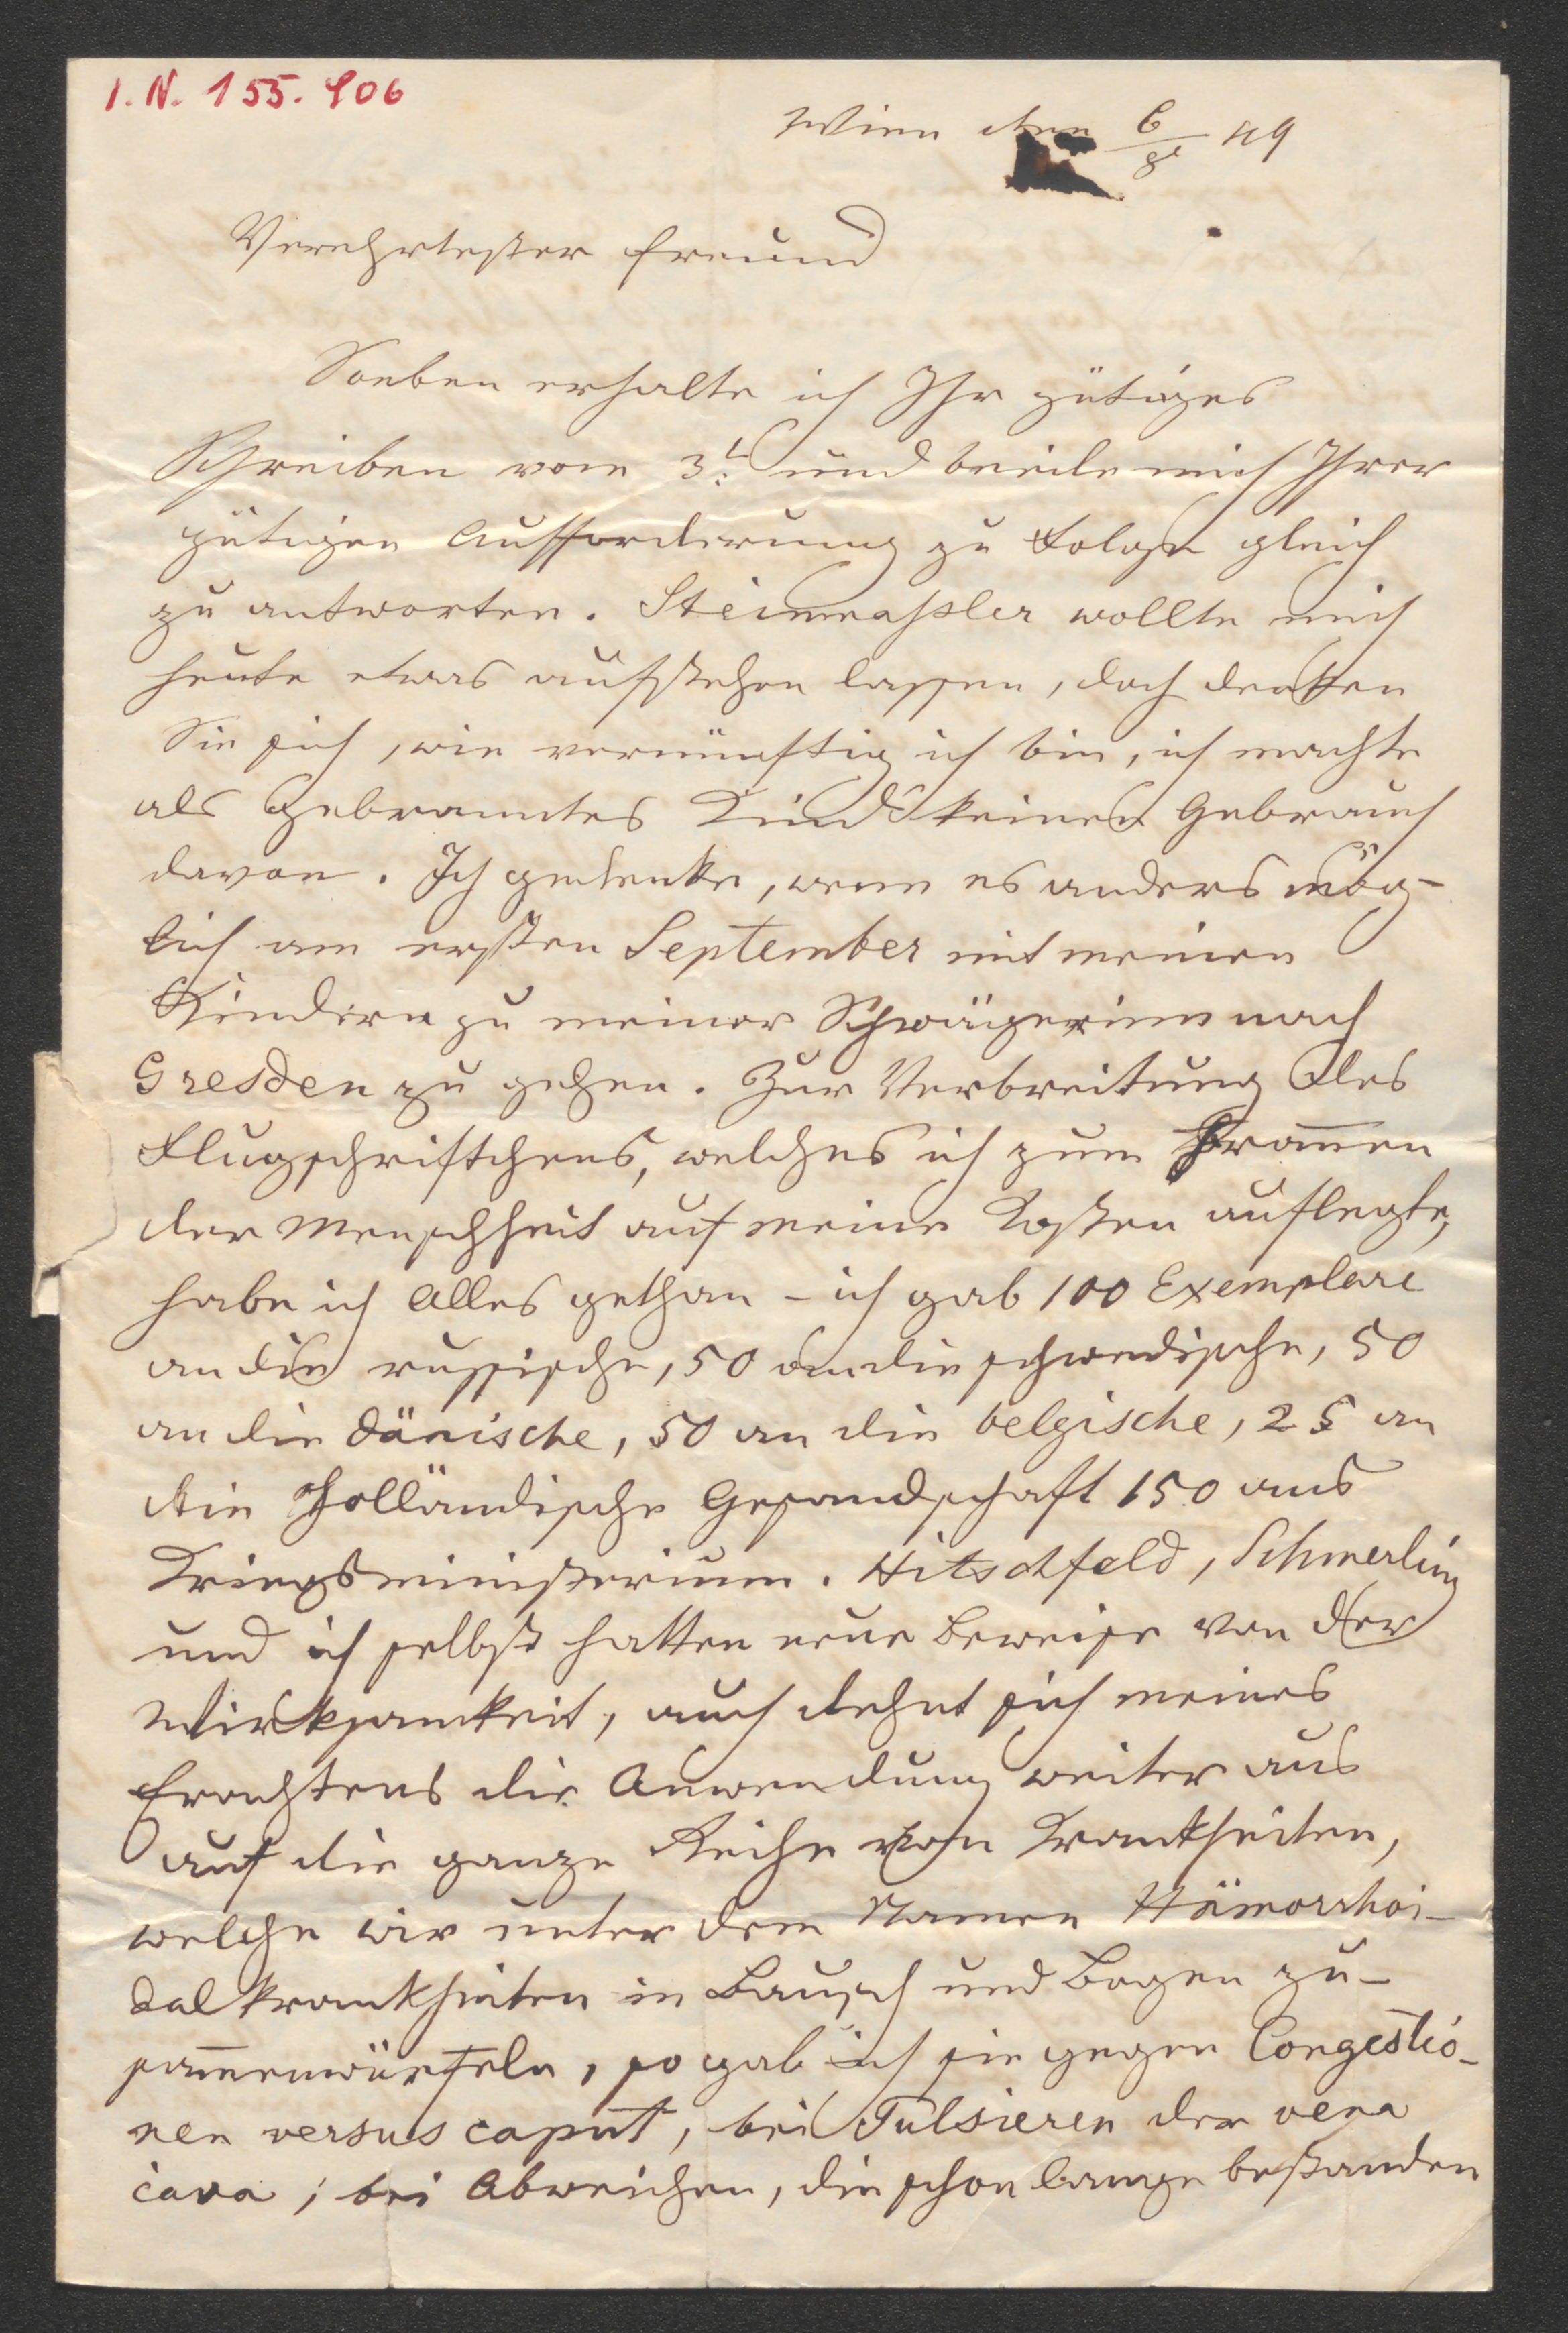 I. N. 155.906
Wien den 6/8 49
Verehrtester Freund
Soeben erhalte ich Ihr gütiges
Schreiben vom 3t. und beeile mich Ihrer
gütigen Aufforderung zu Folge gleich
zu antworten. Steinmassler wollte mich
heute etwas aufstehen lassen, doch denken
Sie sich, wie vernünftig ich bin, ich machte
als gebranntes Kind keinen Gebrauch
davon. Ich gedenke, wenn es anders mög-
lich am ersten September mit meinen
Kindern zu meiner Schwägerinn nach
Dresden zu gehen. Zur Verbreitung des
Flugschriftchens, welches ich zum From̅en
der Menschheit auf meine Kosten auflegte,
habe ich Alles gethan – ich gab 100 Exemplare
an die russische, 50 an die schwedische, 50
an die dänische, 50 an die belgische, 25 an
die Holländische Gesandschaft 150 ans
Kriegsministerium. Hitschfeld, Schmerling
und ich selbst hatten neue Beweise von der
Wirksamkeit, auch dehnt sich meines
Erachtens die Anwendung weiter aus
auf die ganze Reihe von Krankheiten,
welche wir unter dem Namen Hämorrhoi-
dalkrankheiten in Bausch und Bogen zu-
sam̅enwürfeln, so gab ich sie gegen Congestio-
nen versus caput, bei Pulsieren der vena
cava, bei Abweichen, die schon lange bestanden